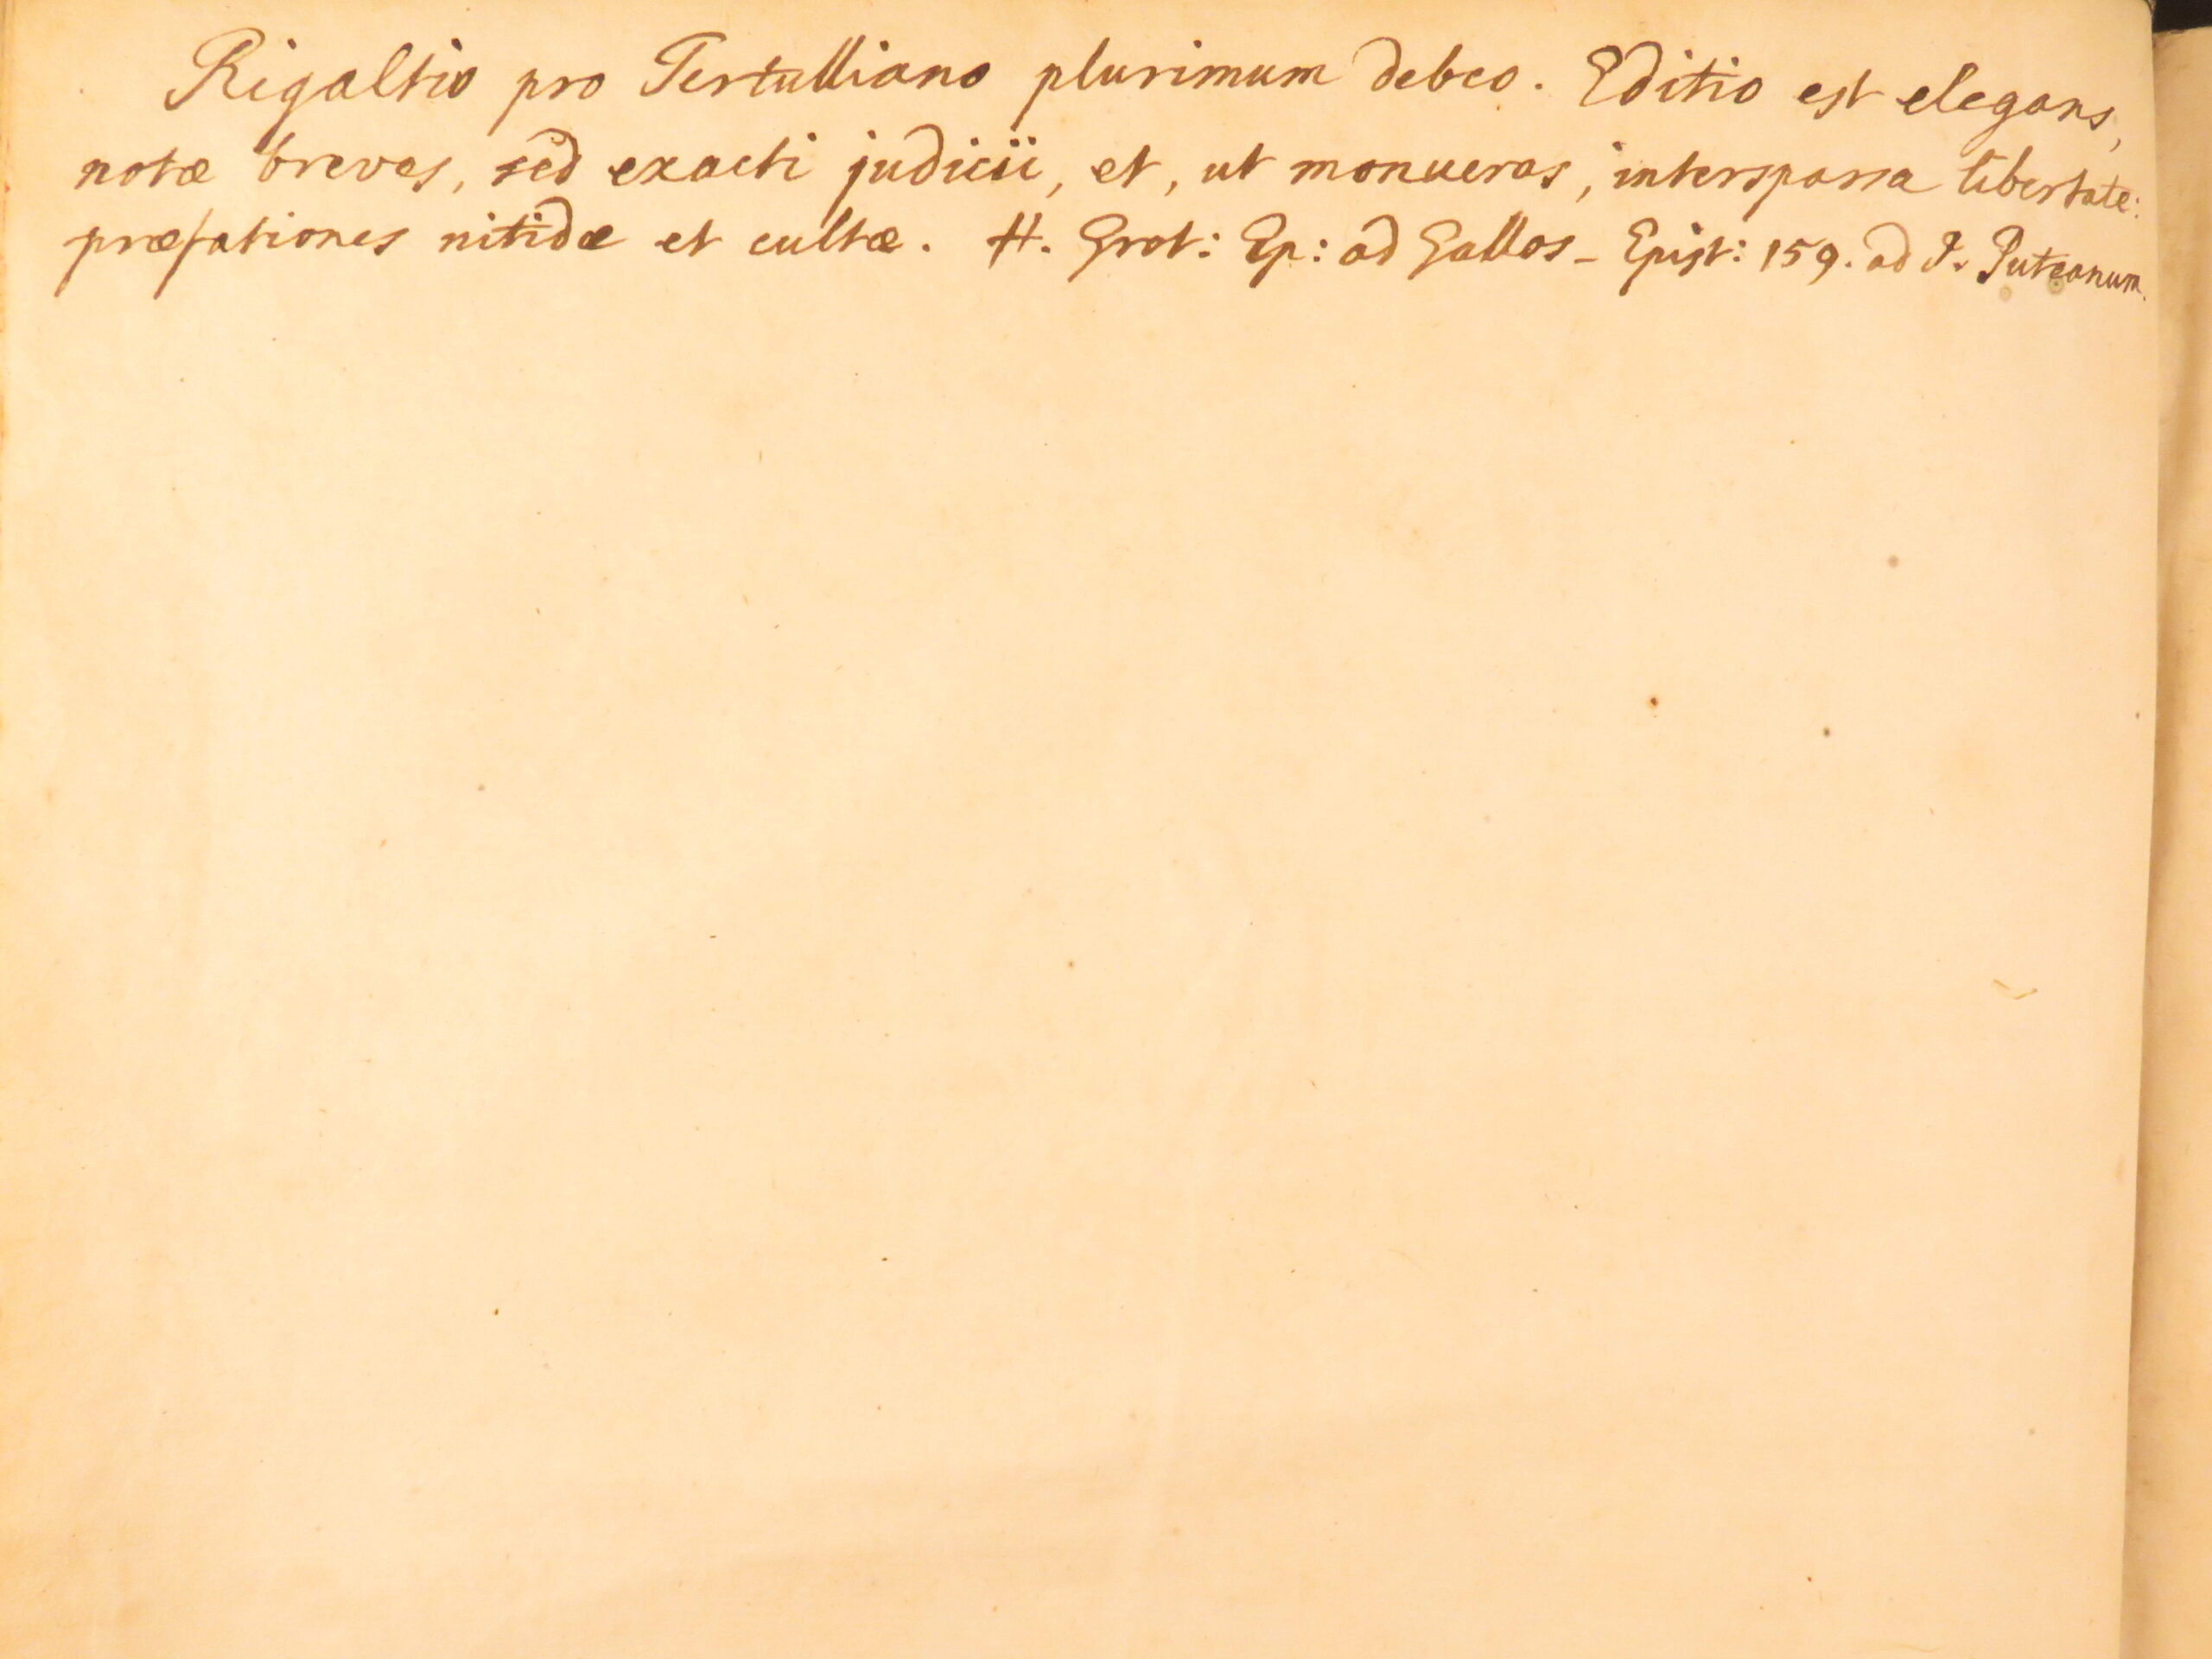 Rigaltio pro Tertulliano plurimum debeo. Editio est elegans,
notæ breves, sed exacti judicii, et, ut monueras, intersparsa libertate:
præfationes nitidæ et cultæ. H. Grot: Ep: ad Gallos - Epist: 159. ad P. Puteanum.